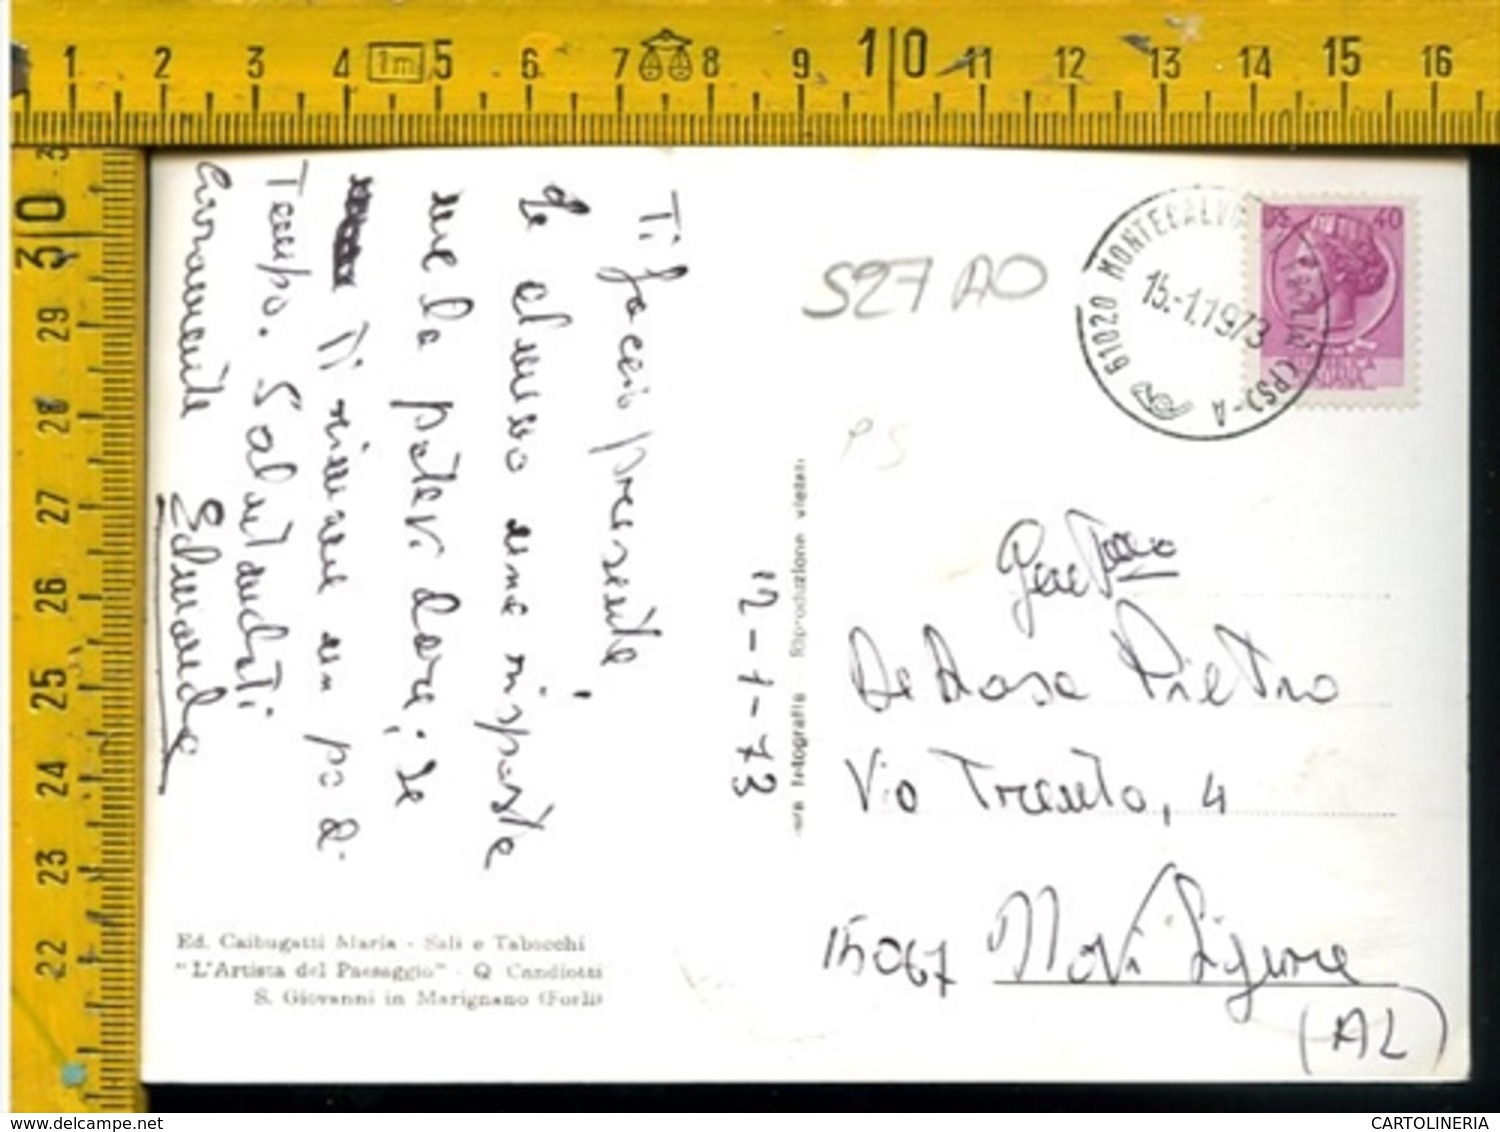 1 2 3 4 1m 5 6 7 8 9 10 11 12 13 14 15 16
30 29 28 27 26 25 24 23 22
Ti faccio presente,
che almeno una risposta
me la potevi dare; se
Ti rimane un po di
Tempo. Salutandoti
Caramente
Edmondo
12-1-73
vera fotografia - Riproduzione vietata
Ed. Caibugatti Maria - Sali e Tabacchi
"L'Artista del Paesaggio" - Q Candiotti
S. Giovanni in Marignano (Forlì)
S27 AO
PS
61020 MONTECALVO (PS)-A
15.-1.1973
40
De Rosa Pietro
Via Trento, 4
15067 Novi Ligure
(AL)
www.delcampe.net
CARTOLINERIA